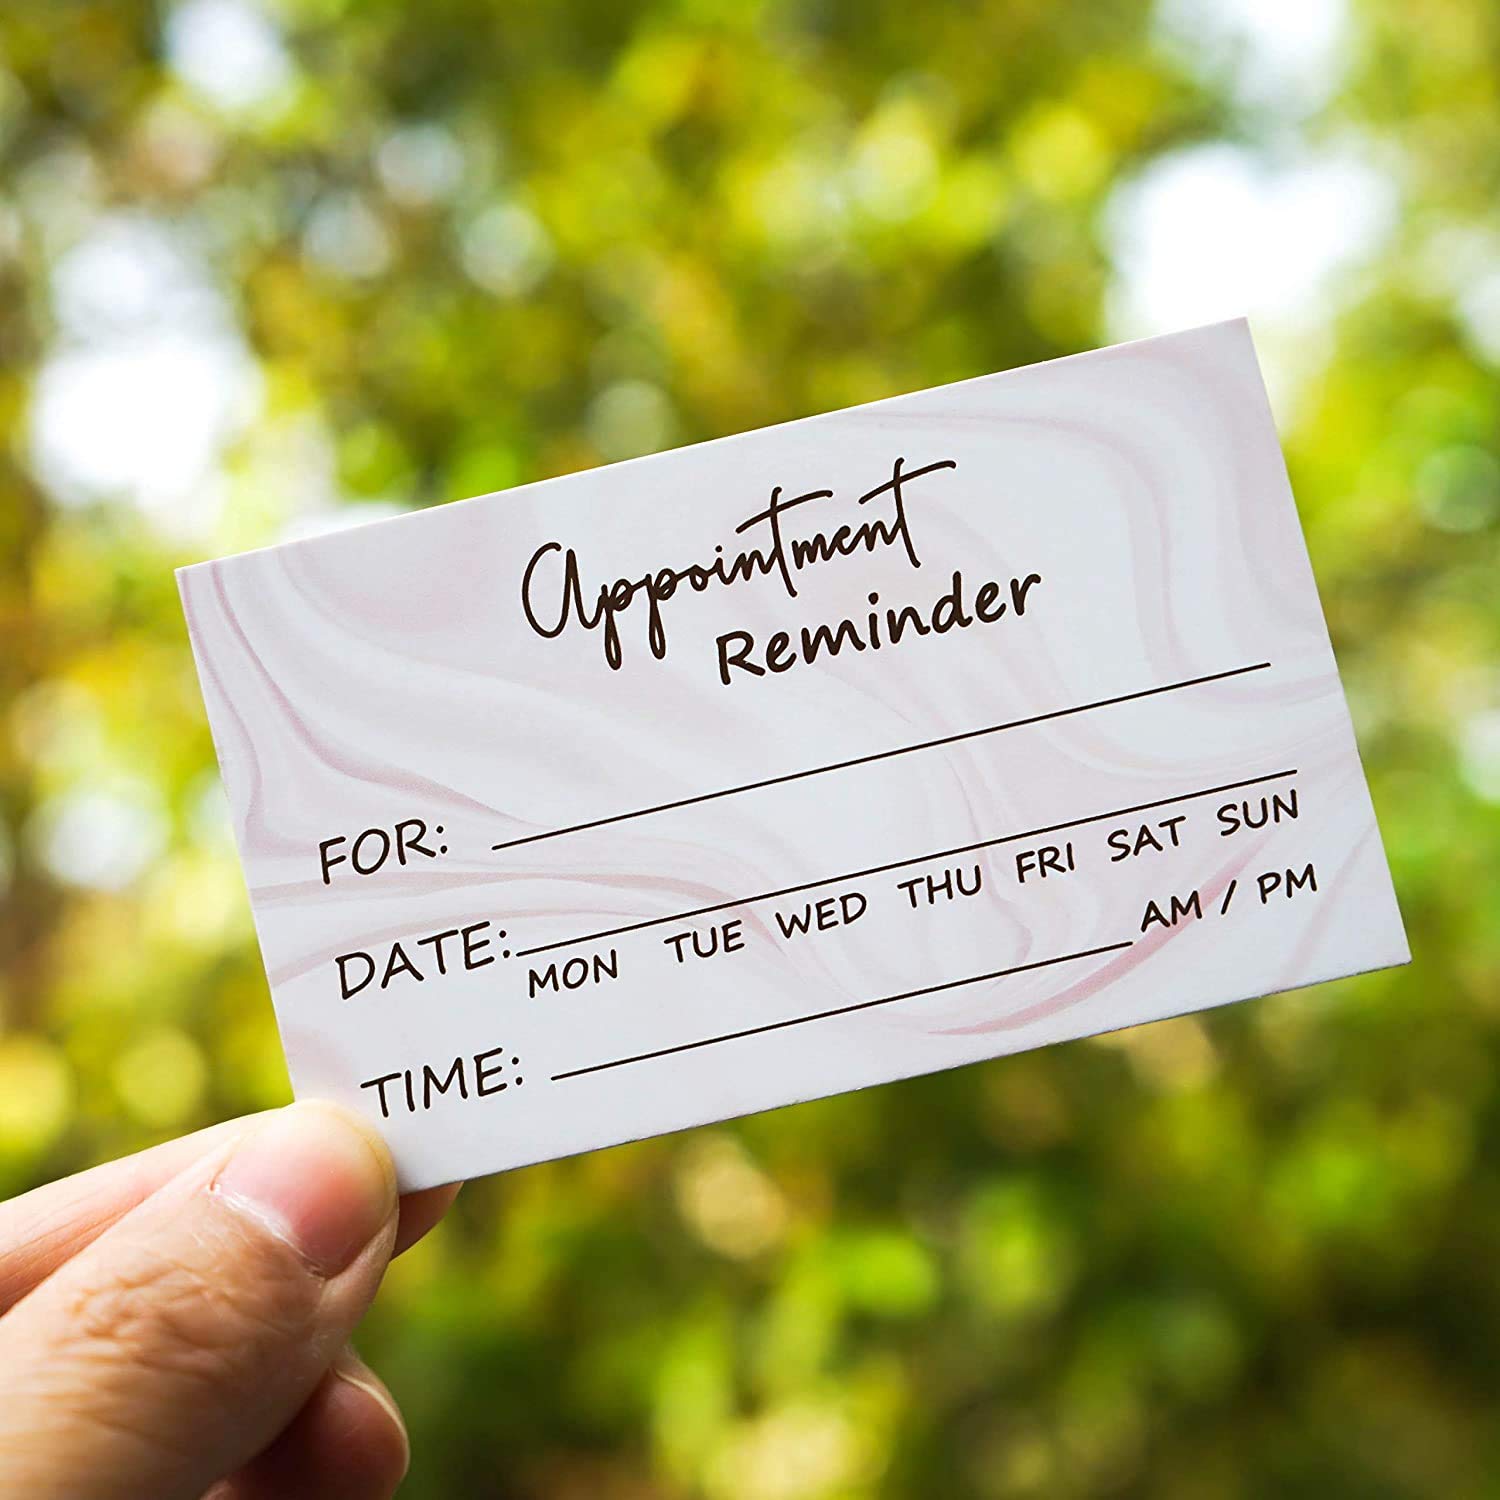 Appointment
Reminder
FOR:
DATE:
MON TUE WED THU FRI SAT SUN
TIME: AM / PM